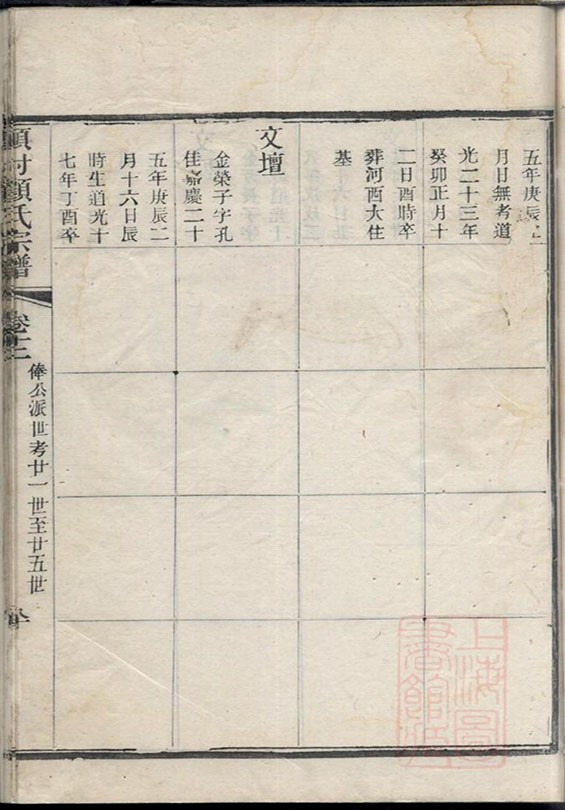 五年庚辰
月日無考道
光二十三年
癸卯正月十
二日酉時卒
葬河西大住
基
文壇
金榮子字孔
佳嘉慶二十
五年庚辰二
月十六日辰
時生道光十
七年丁酉卒
村顏氏宗譜
卷十二
俸公派世考廿一世至廿五世
上海圖
書館藏